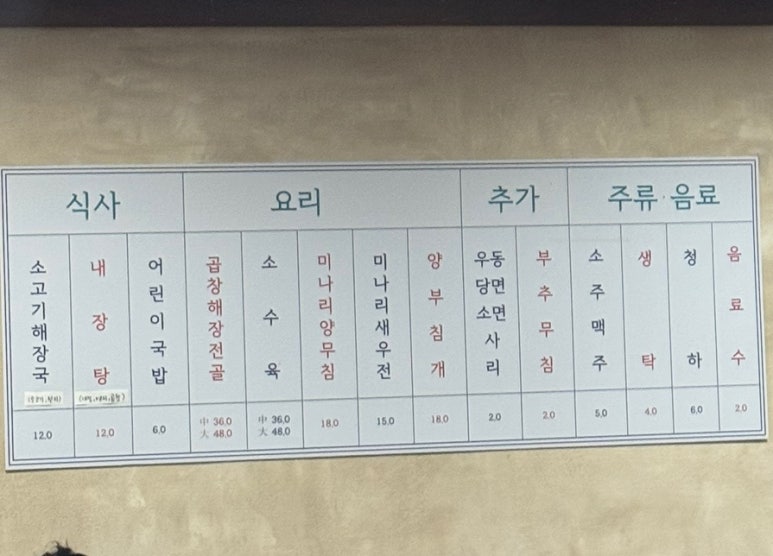 식사
소고기해장국
12.0
내장탕
12.0
어린이국밥
6.0
요리
곱창해장전골
中 36.0
大 48.0
소수육
中 36.0
大 48.0
미나리양무침
18.0
미나리새우전
15.0
양부침개
18.0
추가
우동
당면
소면
사리
2.0
부추무침
2.0
주류·음료
소주맥주
5.0
생탁
4.0
청하
6.0
음료수
2.0